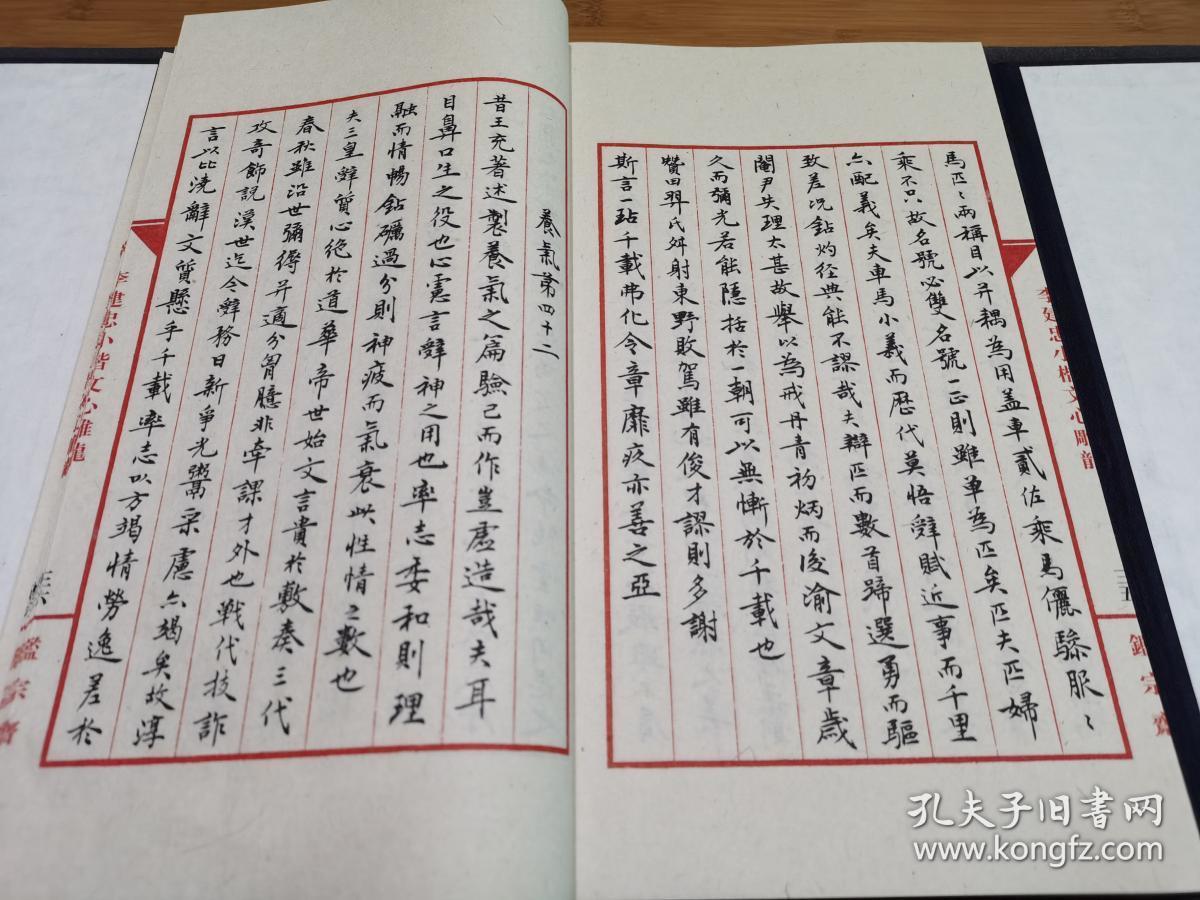 馬匹〻兩稱目以并耦為用盖車貳佐乘馬儷驂服〻
乘不只故名號必雙名號一正則雖单為匹矣匹夫匹婦
亦配義矣夫車馬小義而歷代莫悟辭賦近事而千里
致差况鈷灼经典能不謬哉夫辩匹而數首蹄選勇而驅
閹尹失理太甚故舉以為戒丹青初炳而後渝文章歲
久而彌光若能隱括於一朝可以無慚於千載也
贊曰羿氏舛射東野敗駕雖有俊才謬則多謝
斯言一玷千載弗化令章靡疚亦善之亞
李建忠小楷文心雕龍
一三五
鑑宗齋
養氣第四十二
昔王充著述製養氣之篇驗己而作豈虛造哉夫耳
目鼻口生之役也心慮言辭神之用也率志委和則理
融而情暢鈷礪過分則神疲而氣衰此性情之數也
夫三皇辭質心绝於道華帝世始文言貴於敷奏三代
春秋雖沿世彌縟并適分胷臆非牵課才外也戰代技詐
攻奇飾説漢世迄今辭務日新爭光鬻采慮亦竭矣故淳
言以比澆辭文質懸乎千載率志以方竭情勞逸差於
李建忠小楷文心雕龍
鑑宗齋
孔夫子旧书网
www.kongfz.com